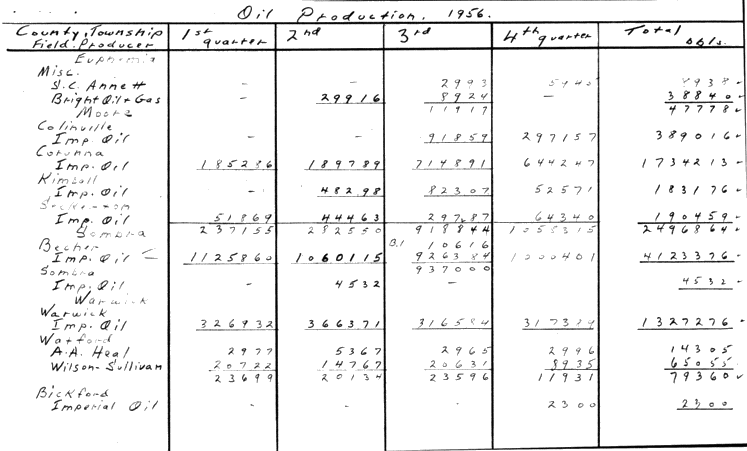 Oil Production. 1956.
County, Township Field. Producer 1st quarter 2nd 3rd 4th quarter Total bbls.
Euphemia
Misc.
J.C. Annett - - 2993 5945 8938
Bright Oil + Gas - 29916 8924 - 38840
Moore 11917 47778
Colinville
Imp. Oil - - 91859 297157 389016
Corunna
Imp. Oil 185286 189789 714891 644247 1734213
Kimball
Imp. Oil - 48298 82307 52571 183176
Imp. Oil 51869 44463 29787 64340 190459
Sombra 237155 282550 918844 1058315 2496864
Becher B.1 10616
Imp. Oil 1125860 1060115 926384 1000401 4123376
Sombra 937000
Imp. Oil - 4532 - 4532
Warwick
Warwick
Imp. Oil 326932 366371 316584 317389 1327276
Watford
A.A. Heal 2977 5367 2965 2996 14305
Wilson-Sullivan 20722 14767 20631 8935 65055
23699 20134 23596 11931 79360
Bickford
Imperial Oil - - - 2300 2300